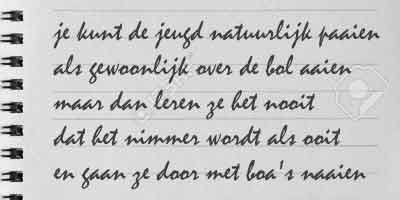 je kunt de jeugd natuurlijk paaien
als gewoonlijk over de bol aaien
maar dan leren ze het nooit
dat het nimmer wordt als ooit
en gaan ze door met boa's naaien